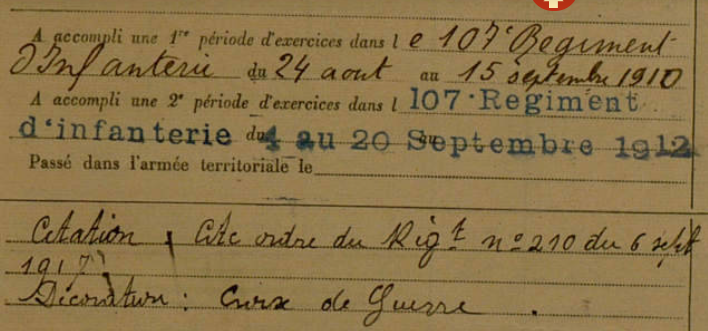 A accompli une 1re période d'exercices dans l e 107e Regiment
d'Infanterie du 24 aout au 15 septembre 1910
A accompli une 2e période d'exercices dans l 107 Regiment
d'infanterie du 4 au 20 Septembre 1912
Passé dans l'armée territoriale le
Citation , Cité ordre du Rigt n° 210 du 6 sept
1917
Décoration : Croix de Guerre .